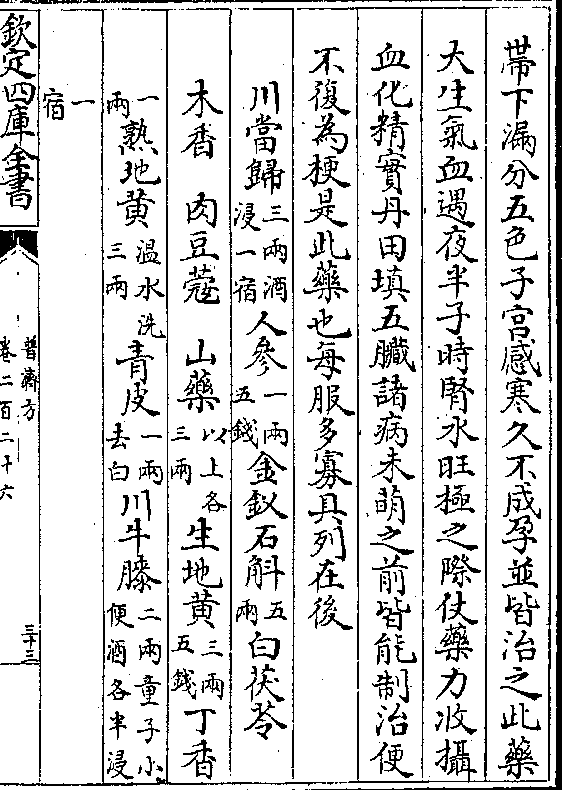 帶下漏分五色子宮感寒久不成孕並皆治之此藥
大生氣血遇夜半子時腎水旺極之際仗藥力收攝
血化精實丹田填五臟諸病未萌之前皆能制治便
不復為梗是此藥也每服多寡具列在後
川當歸三兩酒浸一宿人參一兩五錢金釵石斛五兩白茯苓
木香肉豆蔻山藥以上各三兩生地黃三兩五錢丁香
一兩熟地黃溫水洗三兩青皮一兩去白川牛膝二兩童子小便酒各半浸
一宿
欽定四庫全書
普濟方
卷二百二十六
三十三